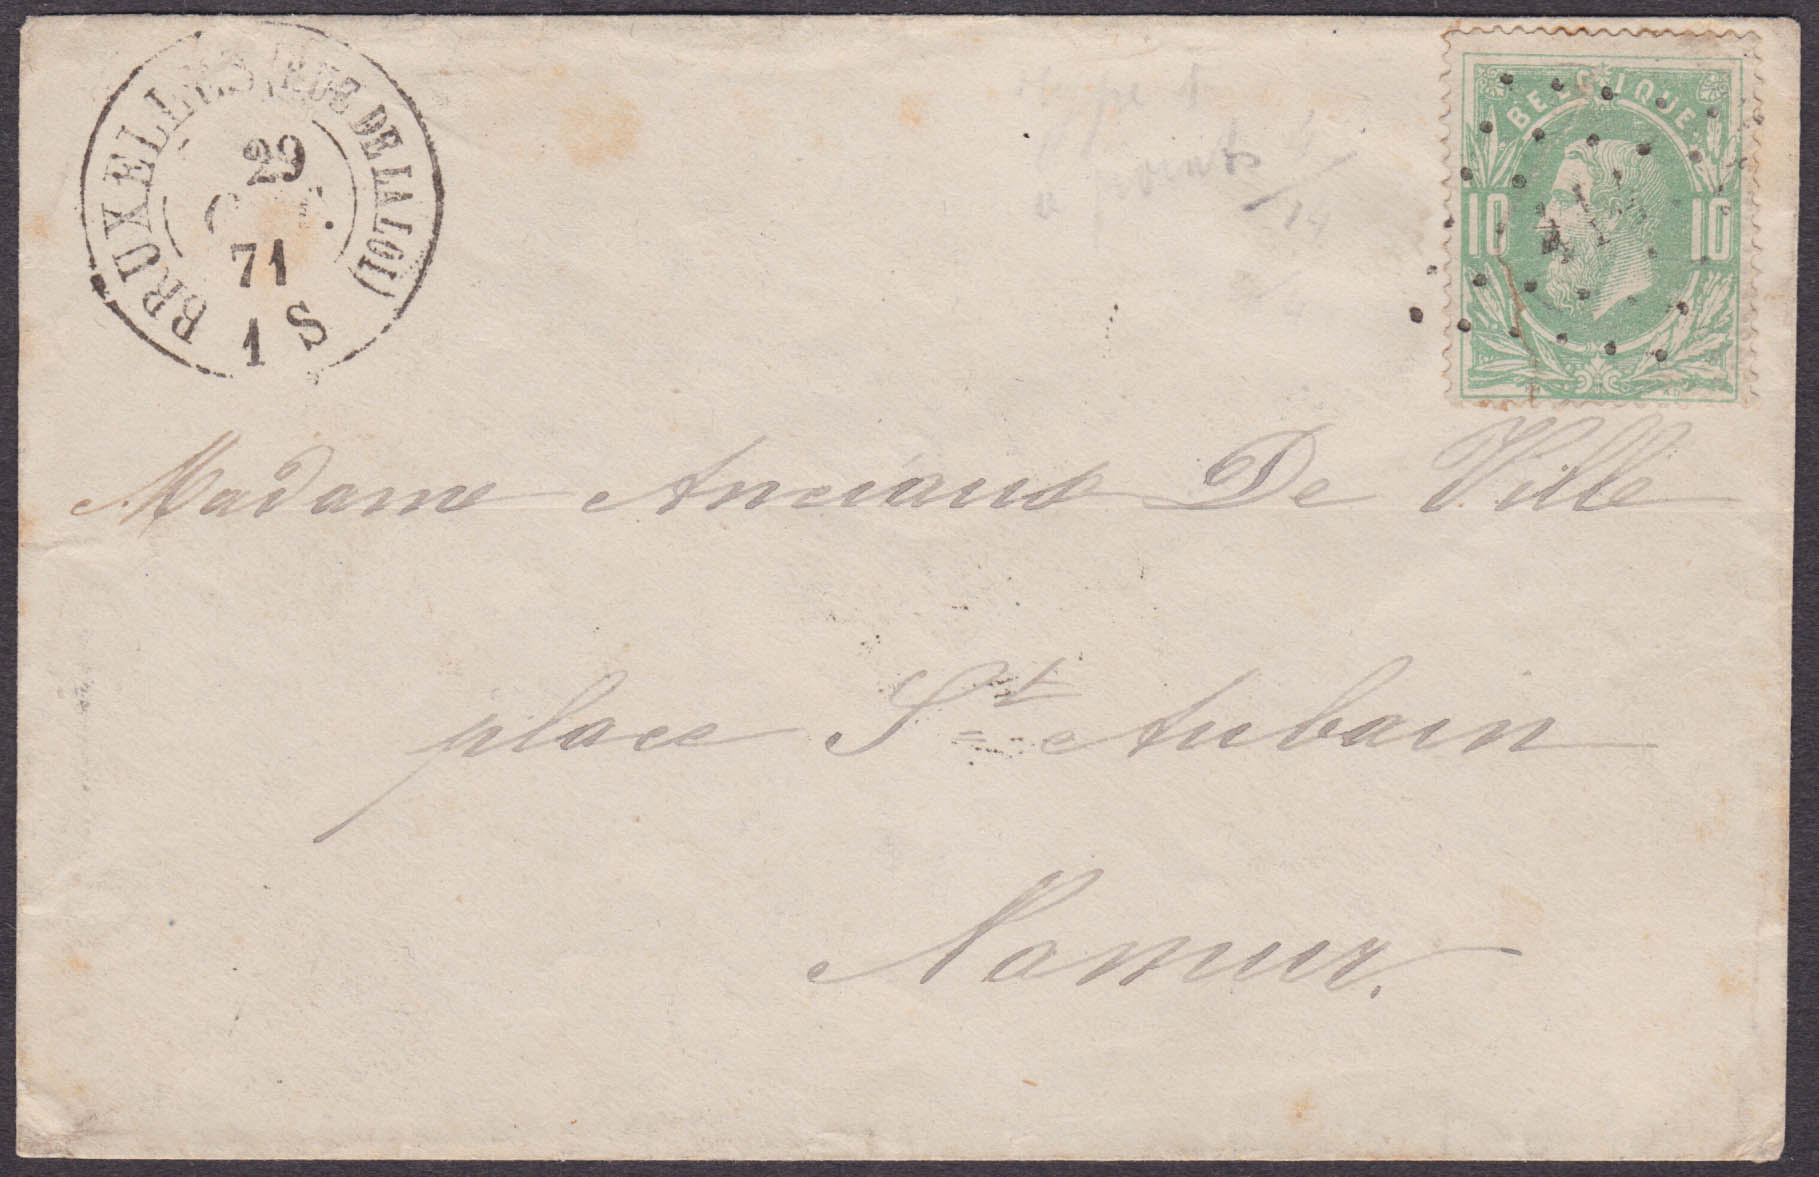 BRUXELLES (RUE DE LA LOI)
29
71
1 S
à points
BELGIQUE
10 10
Madame Anciaux De Ville
place St Aubain
Namur.